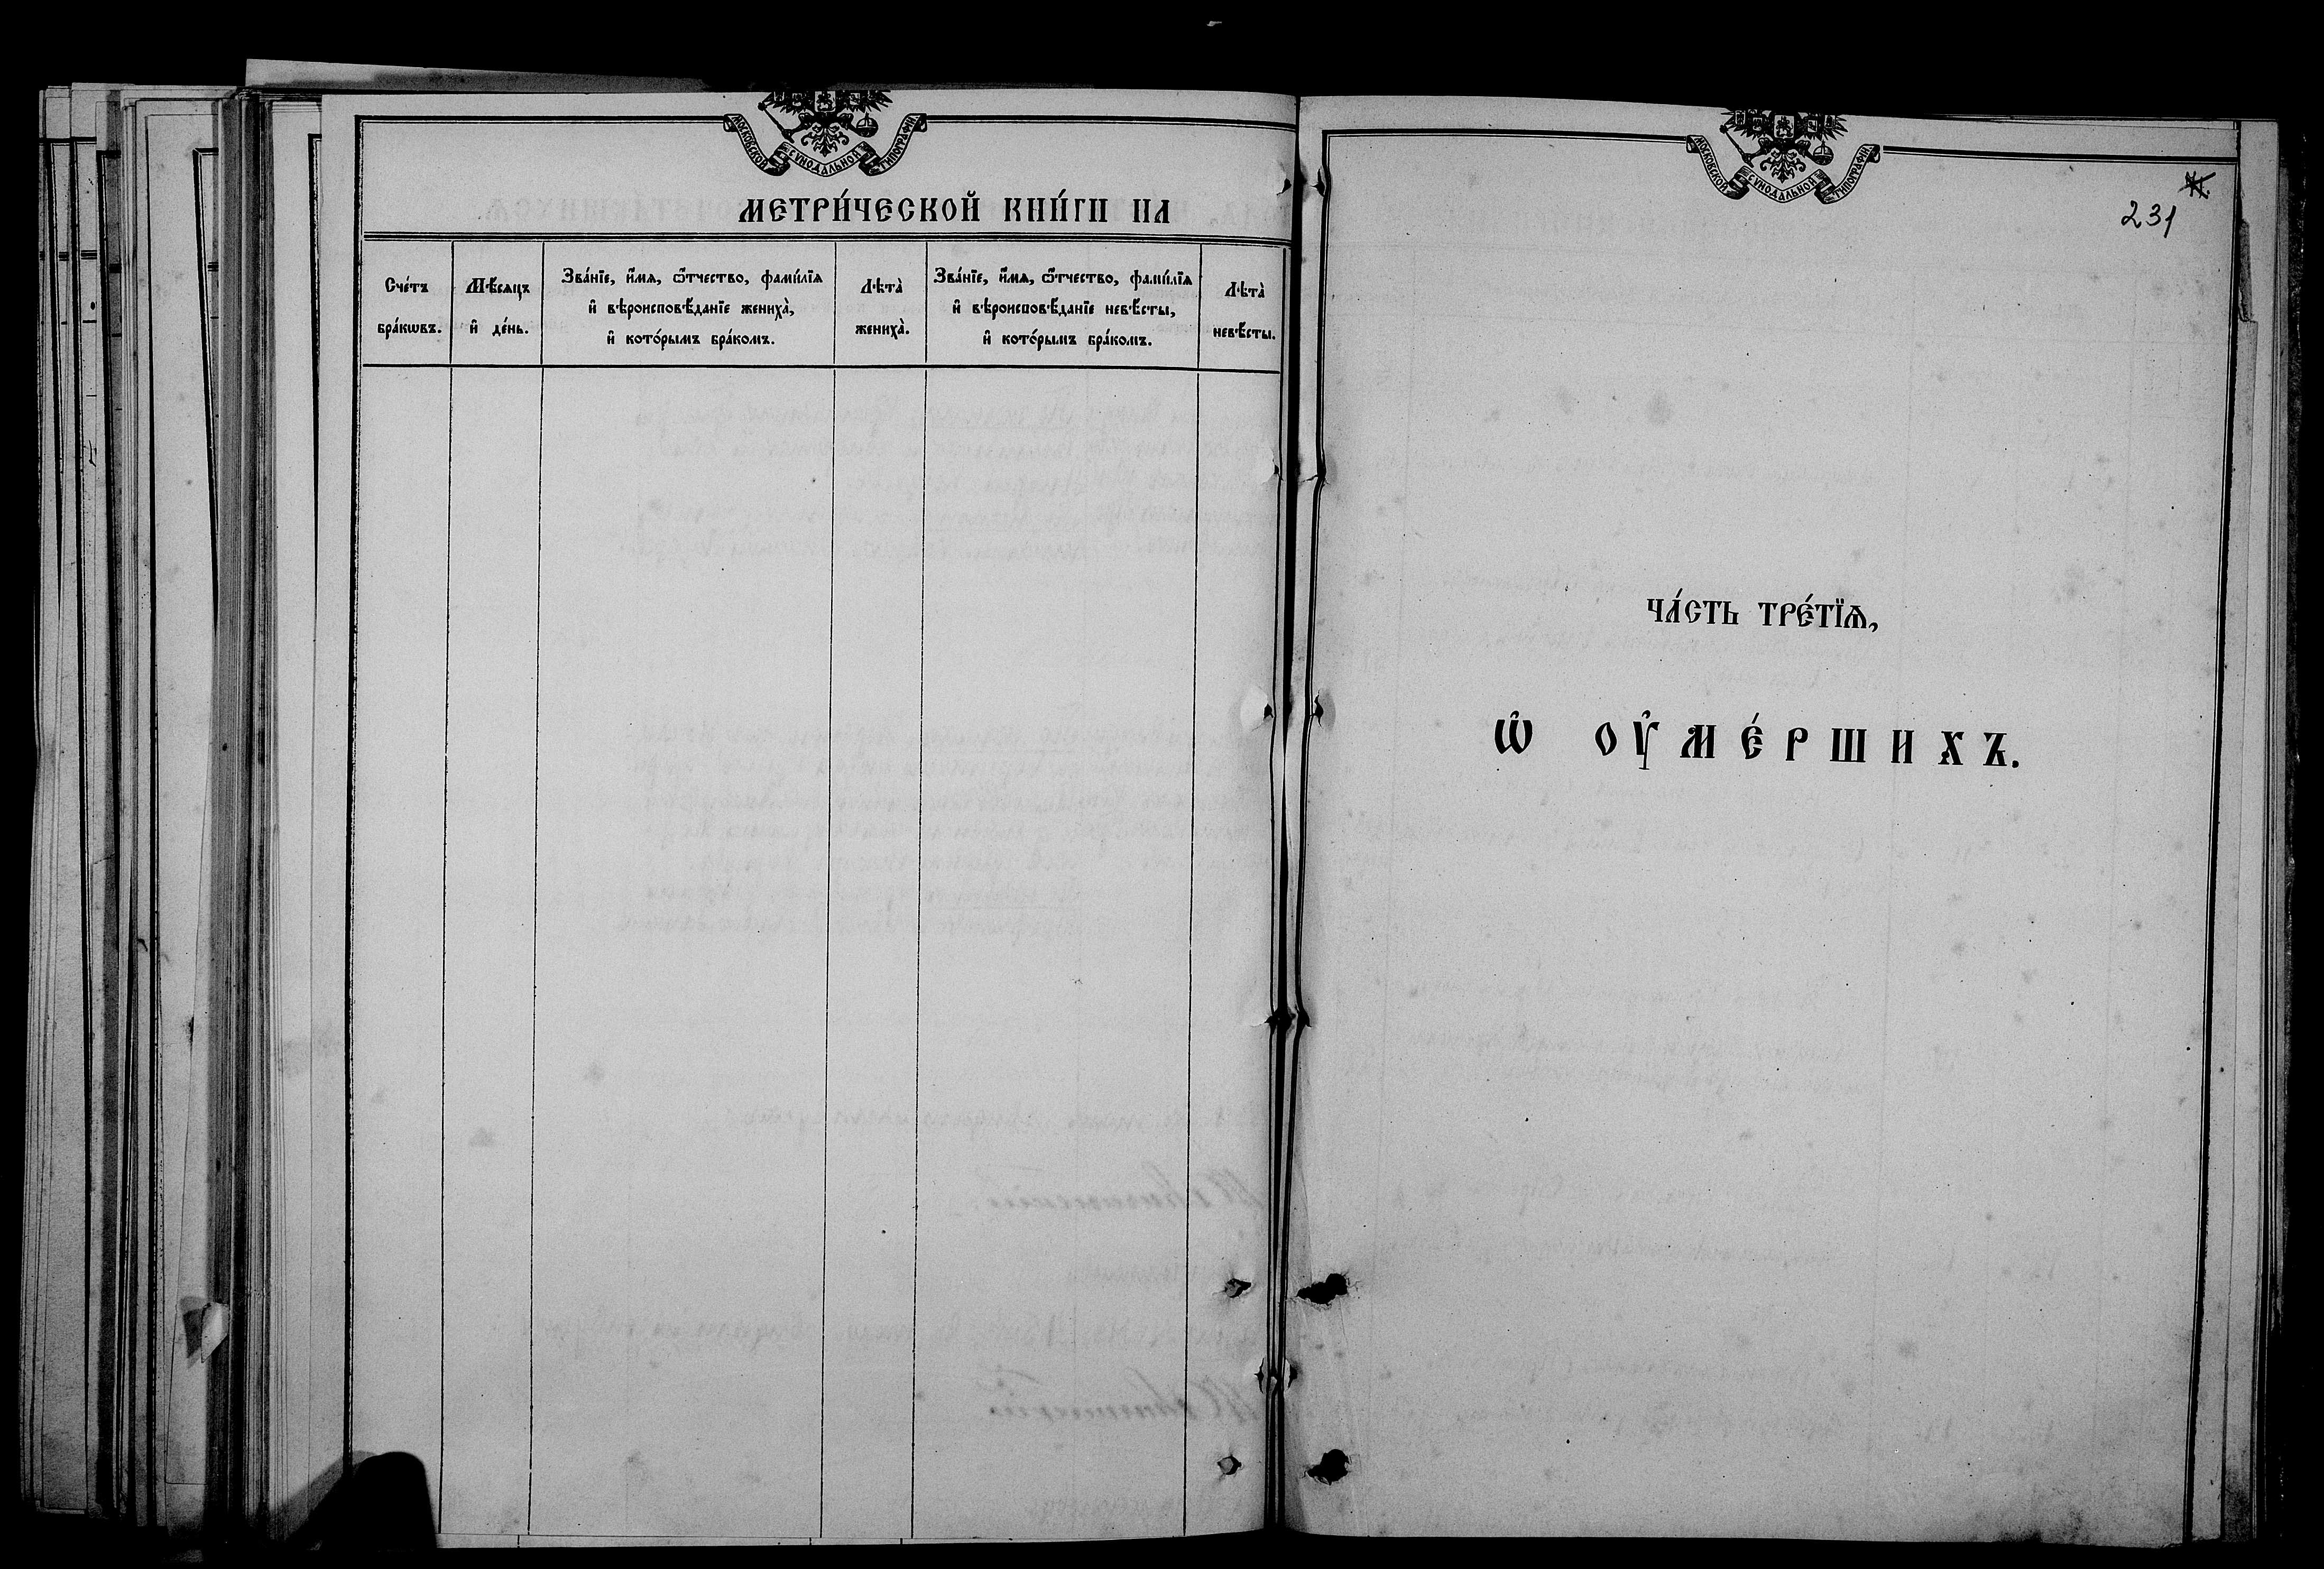 МОСКОВСКОЙ СѴНОДАЛЬНОЙ ТИПОГРАФІИ
МЕТРИ́ЧЕСКОЙ КНИ́ГИ НА
Сче́тъ бра́кѡвъ.
Мѣ́сяцъ и҆ де́нь.
Зва́нїе, и҆́мя, ѻ҆́тчество, фами́лїя
и҆ вѣроисповѣ́данїе жениха̀,
и҆ кото́рымъ бра́комъ.
Лѣта̀ жениха̀.
Зва́нїе, и҆́мя, ѻ҆́тчество, фами́лїя
и҆ вѣроисповѣ́данїе невѣ́сты,
и҆ кото́рымъ бра́комъ.
Лѣта̀ невѣ́сты.
МОСКОВСКОЙ СѴНОДАЛЬНОЙ ТИПОГРАФІИ
231
ЧА́СТЬ ТРЕ́ТЇѦ,
Ѡ҆ ОУ҆МЕ́РШИХЪ.